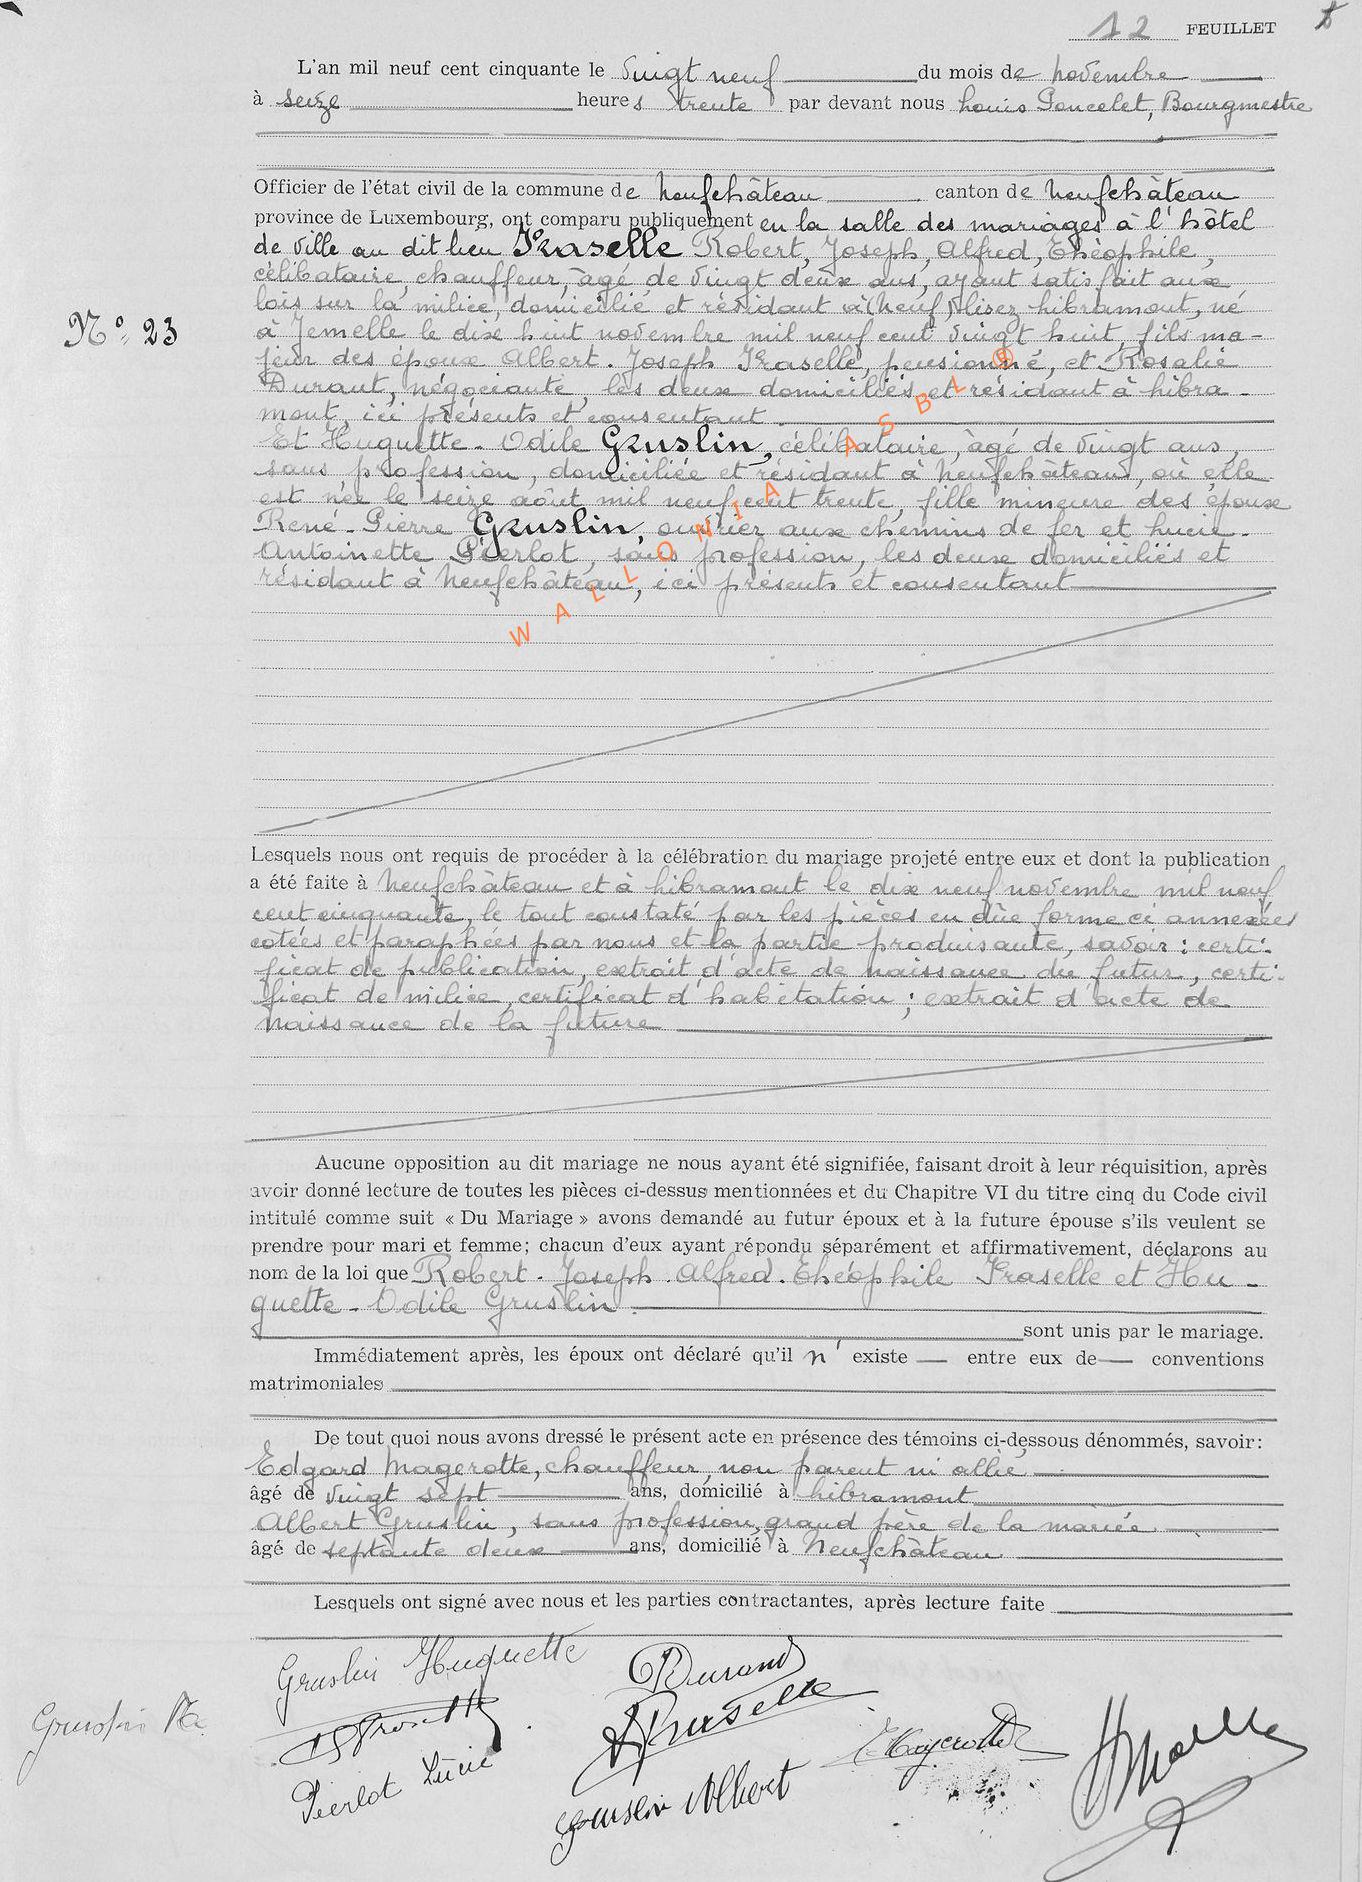 12 FEUILLET
L'an mil neuf cent cinquante le vingt neuf du mois de novembre
à seize heures trente par devant nous Louis Poncelet, Bourgmestre
Officier de l'état civil de la commune de Neufchâteau canton de Neufchâteau
province de Luxembourg, ont comparu publiquement en la salle des mariages à l'hôtel
de ville au dit lieu Fraselle Robert, Joseph, Alfred, Théophile,
célibataire, chauffeur, âgé de vingt deux ans, ayant satisfait aux
lois sur la milice, domicilié et résidant à (Neuf) lisez Libramont, né
N° 23
à Jemelle le dix huit novembre mil neuf cent vingt huit, fils ma-
jeur des époux Albert. Joseph Fraselle, pensionné, et Rosalie
Durant, négociante, les deux domiciliés et résidant à Libra-
mont, ici présents et consentant
Et Huguette - Odile Gruslin, célibataire, âgé de vingt ans,
sans profession, domiciliée et résidant à Neufchâteau, où elle
est née le seize août mil neuf cent trente, fille mineure des époux
René - Pierre Gruslin, ouvrier aux chemins de fer et Lucie -
Antoinette Pierlot, sans profession, les deux domiciliés et
résidant à Neufchâteau, ici présents et consentant
WALLONIA ASBL ®
Lesquels nous ont requis de procéder à la célébration du mariage projeté entre eux et dont la publication
a été faite à Neufchâteau et à Libramont le dix neuf novembre mil neuf
cent cinquante, le tout constaté par les pièces en dûe forme ci annexées
cotées et paraphées par nous et la partie produisante, savoir : certi-
ficat de publication, extrait d'acte de naissance du futur, certi-
ficat de milice, certificat d'habitation ; extrait d'acte de
naissance de la future
Aucune opposition au dit mariage ne nous ayant été signifiée, faisant droit à leur réquisition, après
avoir donné lecture de toutes les pièces ci-dessus mentionnées et du Chapitre VI du titre cinq du Code civil
intitulé comme suit « Du Mariage » avons demandé au futur époux et à la future épouse s'ils veulent se
prendre pour mari et femme; chacun d'eux ayant répondu séparément et affirmativement, déclarons au
nom de la loi que Robert. Joseph. Alfred. Théophile Fraselle et Hu-
guette - Odile Gruslin
sont unis par le mariage.
Immédiatement après, les époux ont déclaré qu'il n'existe entre eux de conventions
matrimoniales
De tout quoi nous avons dressé le présent acte en présence des témoins ci-dessous dénommés, savoir:
Edgard Magerotte, chauffeur, non parent ni allié
âgé de vingt sept ans, domicilié à Libramont
Albert Gruslin, sans profession, grand père de la mariée
âgé de septante deux ans, domicilié à Neufchâteau
Lesquels ont signé avec nous et les parties contractantes, après lecture faite
Gruslin Huguette
R Durand
Fraselle
Gruslin
E Magerotte
Pierlot Lucie
Gruslin Albert